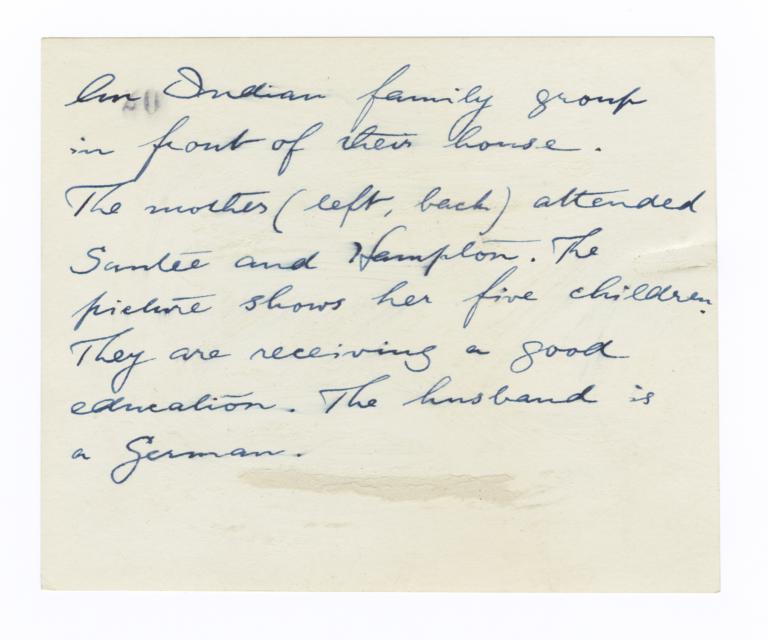 An Indian family group
in front of their house.
The mother (left, back) attended
Santee and Hampton. The
picture shows her five children.
They are receiving a good
education. The husband is
a German.